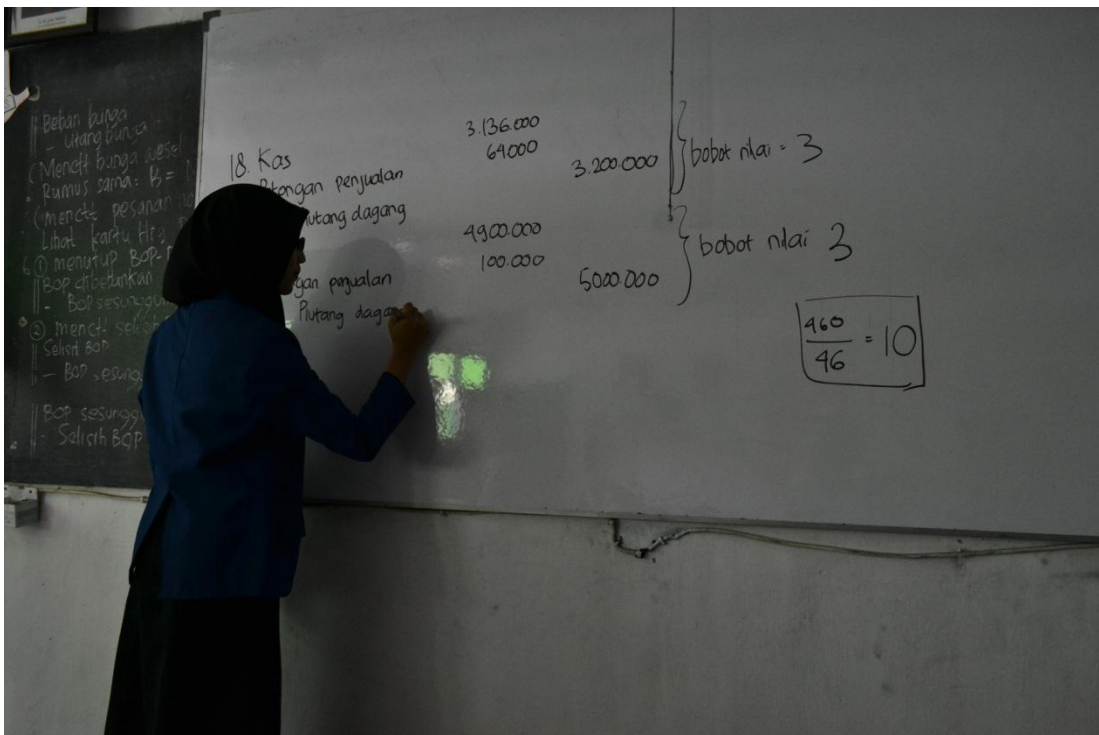 Beban bunga
- Utang bunga
(Menctt bunga wesel
Rumus sama: B =
(menctt pesanan
Lihat kartu Hrg
6 ① menutup BOP-
BOP dibebankan
- BOP sesunggu
② menctt selisih
Selisih BOP
- BOP sesung
BOP sesungg
- Selisih BOP
18. Kas 3.136.000
Potongan penjualan 64.000
utang dagang 3.200.000
bobot nilai = 3
4.900.000
gan penjualan 100.000
Piutang daga 5000.000
bobot nilai 3
460
46 = 10